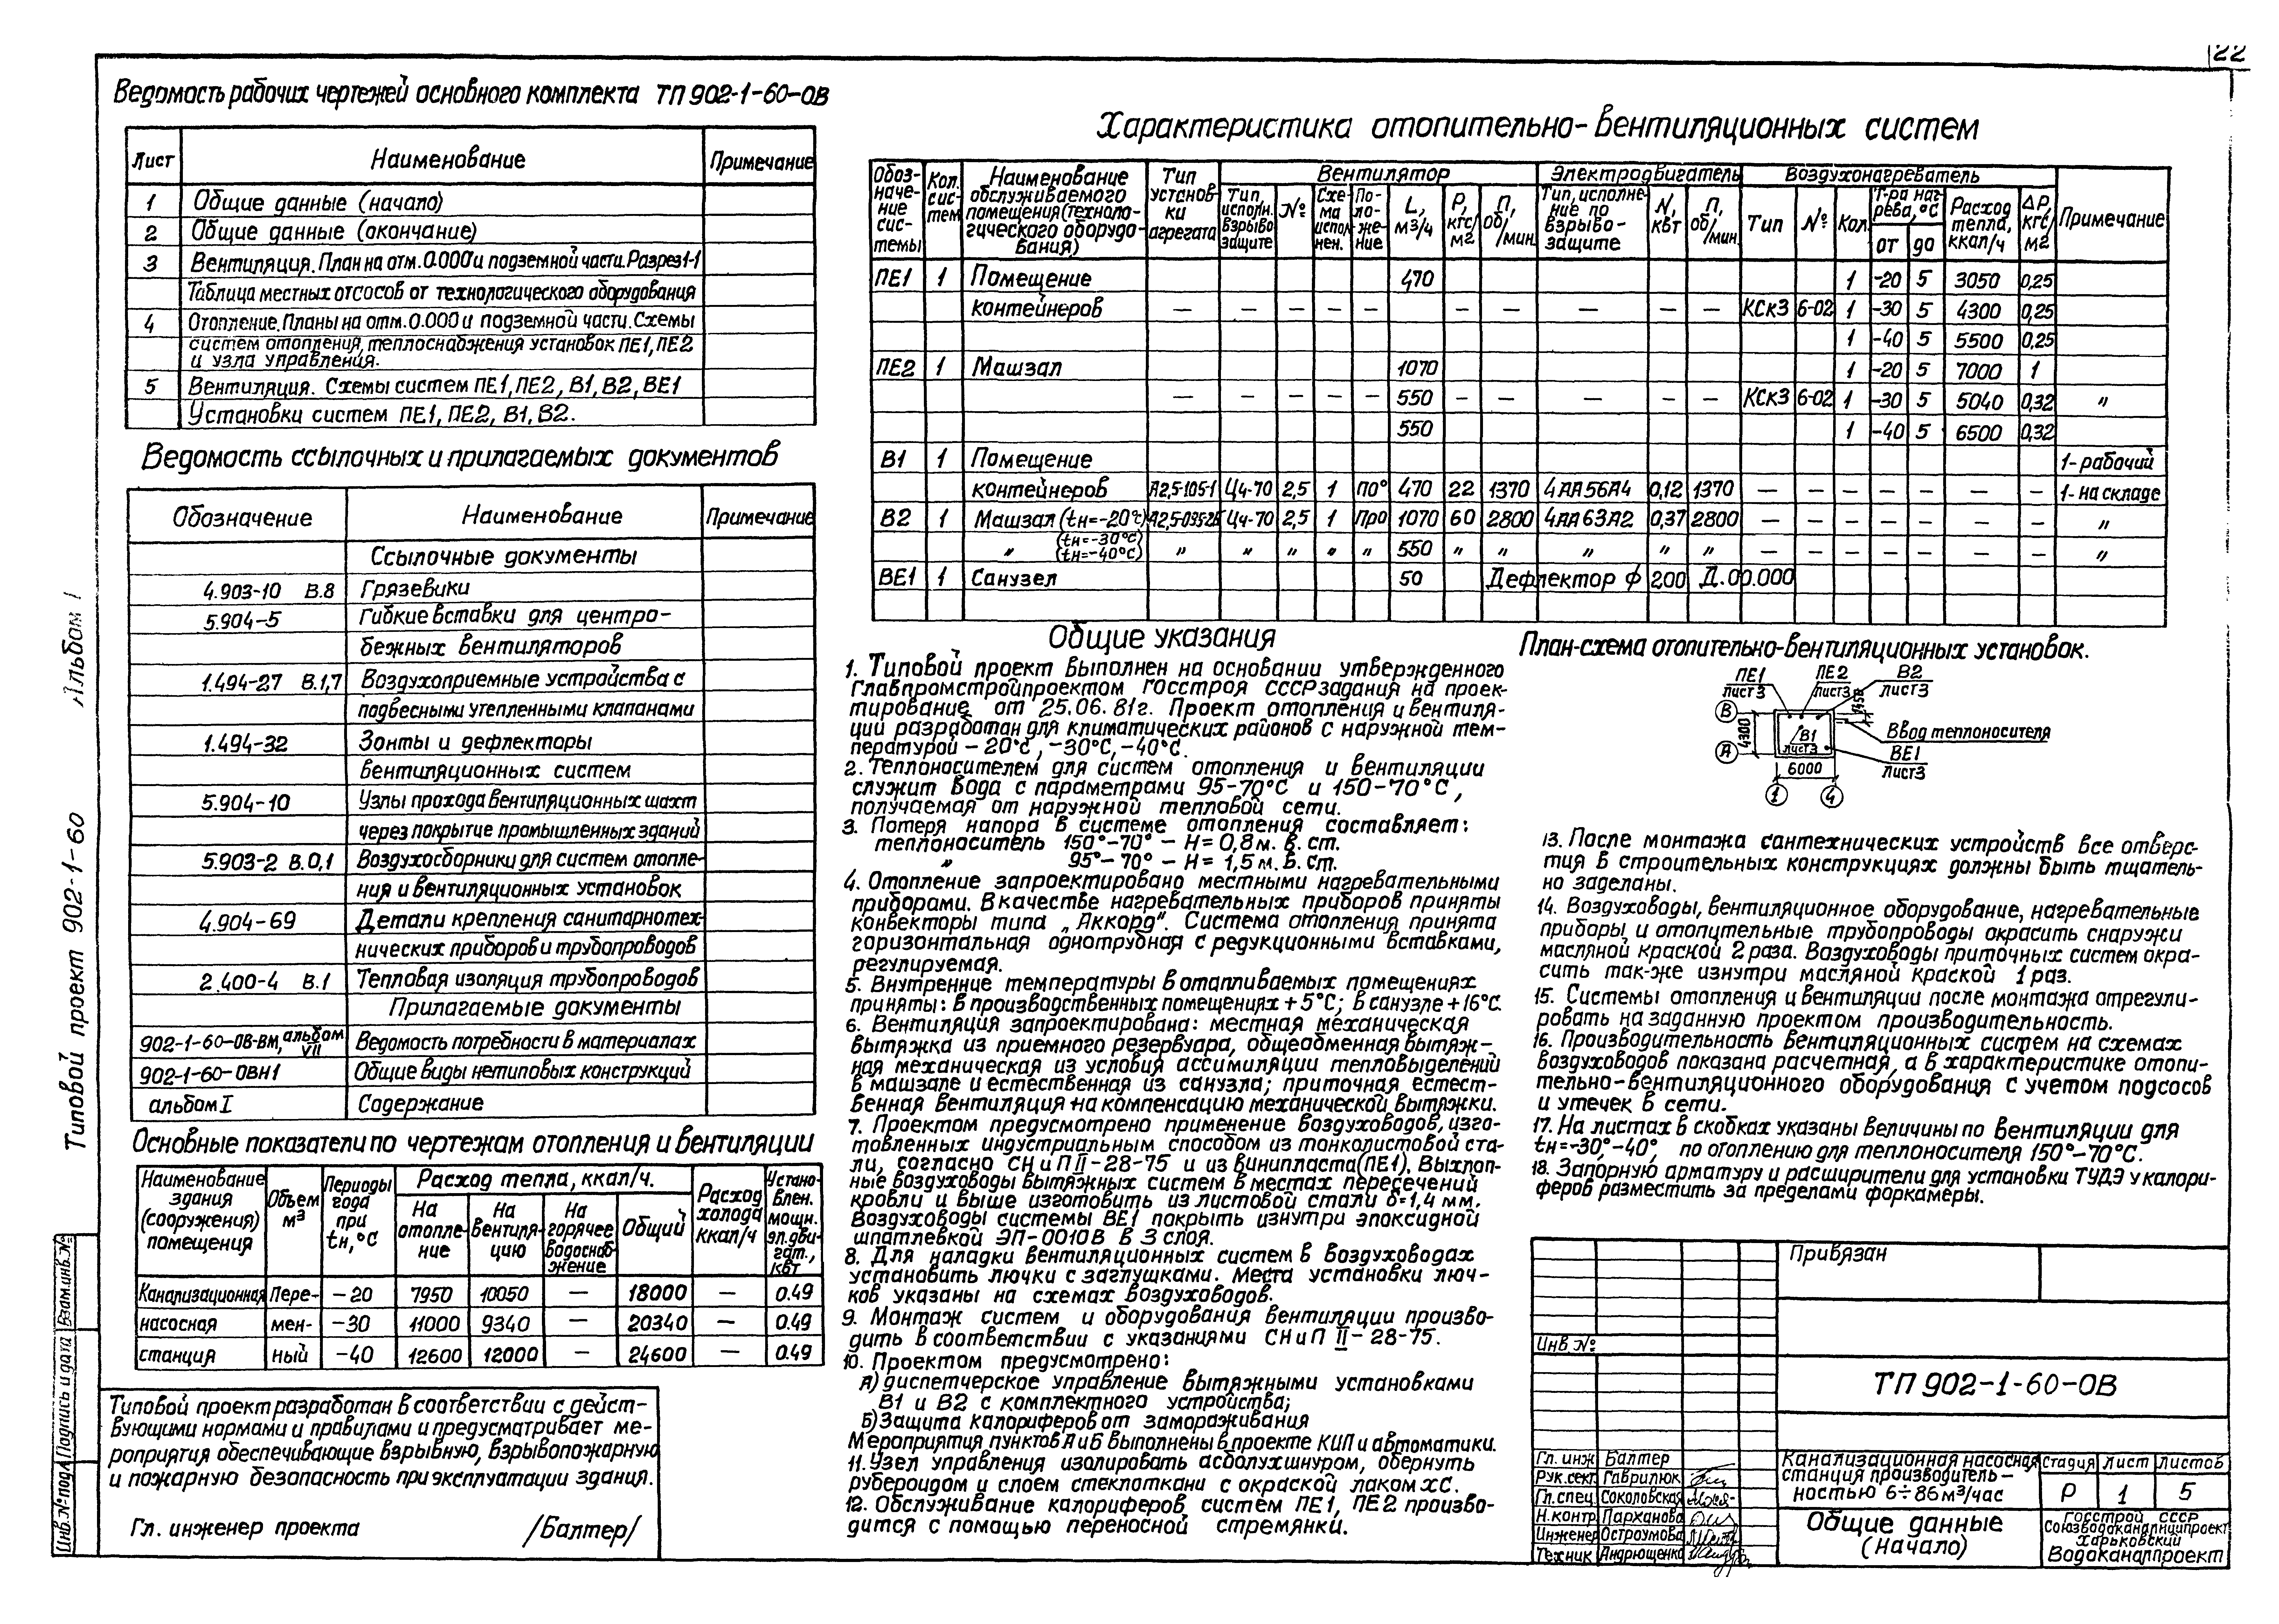 22
Ведомость рабочих чертежей основного комплекта ТП 902-1-60-ОВ
Лист Наименование Примечание
1 Общие данные (начало)
2 Общие данные (окончание)
3 Вентиляция. План на отм. 0.000 и подземной части. Разрез 1-1
Таблица местных отсосов от технологического оборудования
4 Отопление. Планы на отм. 0.000 и подземной части. Схемы
систем отопления, теплоснабжения установок ПЕ1, ПЕ2
и узла управления.
5 Вентиляция. Схемы систем ПЕ1, ПЕ2, В1, В2, ВЕ1
Установки систем ПЕ1, ПЕ2, В1, В2.
Ведомость ссылочных и прилагаемых документов
Обозначение Наименование Примечание
Ссылочные документы
4.903-10 В.8 Грязевики
5.904-5 Гибкие вставки для центро-
бежных вентиляторов
1.494-27 В.1,7 Воздухоприемные устройства с
подвесными утепленными клапанами
1.494-32 Зонты и дефлекторы
вентиляционных систем
5.904-10 Узлы прохода вентиляционных шахт
через покрытие промышленных зданий
5.903-2 В.0,1 Воздухосборники для систем отопле-
ния и вентиляционных установок
4.904-69 Детали крепления санитарнотех-
нических приборов и трубопроводов
2.400-4 В.1 Тепловая изоляция трубопроводов
Прилагаемые документы
902-1-60-ОВ-ВМ, альбом VII Ведомость потребности в материалах
902-1-60-ОВН1 Общие виды нетиповых конструкций
альбом I Содержание
Основные показатели по чертежам отопления и вентиляции
Наименование здания (сооружения) помещения Объем м³ Периоды года при tн, °С Расход тепла, ккал/ч. Расход холода ккал/ч Установлен. мощн. эл.двигат., квт
На отопление На вентиляцию На горячее водоснабжение Общий
Канализационная Пере- -20 7950 10050 — 18000 — 0.49
насосная мен- -30 11000 9340 — 20340 — 0.49
станция ный -40 12600 12000 — 24600 — 0.49
Типовой проект разработан в соответствии с дейст-
вующими нормами и правилами и предусматривает ме-
роприятия обеспечивающие взрывную, взрывопожарную
и пожарную безопасность при эксплуатации здания.
Гл. инженер проекта /Балтер/
Типовой проект 902-1-60 Альбом I
Инв.№ подл. Подпись и дата Взам.инв.№
Характеристика отопительно-вентиляционных систем
Обозначение системы Кол. систем Наименование обслуживаемого помещения (технологического оборудования) Тип установки агрегата Вентилятор Электродвигатель Воздухонагреватель Примечание
Тип, исполн. взрывозащите № Схема исполнен. Положение L, м³/ч Р, кгс/м2 П, об/мин. Тип, исполнение по взрывозащите N, квт П, об/мин. Тип № Кол. Т-ра нагрева, °С от до Расход тепла, ккал/ч ΔР, кгс/м2
ПЕ1 1 Помещение 470 1 -20 5 3050 0,25
контейнеров — — — — — — — — — — КСк3 6-02 1 -30 5 4300 0,25
1 -40 5 5500 0,25
ПЕ2 1 Машзал 1070 1 -20 5 7000 1
— — — — — 550 — — — — — КСк3 6-02 1 -30 5 5040 0,32 "
550 1 -40 5 6500 0,32
В1 1 Помещение 1-рабочий
контейнеров А2,5-105-1 Ц4-70 2,5 1 ПО° 470 22 1370 4АА56А4 0,12 1370 — — — — — — — 1-на складе
В2 1 Машзал (tн=-20°С) Ц4-70 2,5 1 Пр0 1070 60 2800 4АА63А2 0,37 2800 — — — — — — — "
" (tн=-30°С) (tн=-40°С) " " " " " 550 " " " " " — — — — — — — "
ВЕ1 1 Санузел 50 Дефлектор ф 200 Д.00.000
Общие указания
1. Типовой проект выполнен на основании утвержденного
Главпромстройпроектом Госстроя СССР задания на проек-
тирование от 25.06.81г. Проект отопления и вентиля-
ции разработан для климатических районов с наружной тем-
пературой -20°с, -30°С, -40°С.
2. Теплоносителем для систем отопления и вентиляции
служит вода с параметрами 95-70°С и 150-70°С,
получаемая от наружной тепловой сети.
3. Потеря напора в системе отопления составляет:
теплоноситель 150°-70° - Н=0,8м. в. ст.
" 95°-70° - Н=1,5м. в. ст.
4. Отопление запроектировано местными нагревательными
приборами. В качестве нагревательных приборов приняты
конвекторы типа „Аккорд". Система отопления принята
горизонтальная однотрубная с редукционными вставками,
регулируемая.
5. Внутренние температуры в отапливаемых помещениях
приняты: в производственных помещениях +5°С; в санузле +16°С.
6. Вентиляция запроектирована: местная механическая
вытяжка из приемного резервуара, общеобменная вытяж-
ная механическая из условия ассимиляции тепловыделений
в машзале и естественная из санузла; приточная естест-
венная вентиляция на компенсацию механической вытяжки.
7. Проектом предусмотрено применение воздуховодов, изго-
товленных индустриальным способом из тонколистовой ста-
ли, согласно СНиП II-28-75 и из винипласта (ПЕ1). Выхлоп-
ные воздуховоды вытяжных систем в местах пересечений
кровли и выше изготовить из листовой стали δ=1,4 мм.
Воздуховоды системы ВЕ1 покрыть изнутри эпоксидной
шпатлевкой ЭП-0010В в 3 слоя.
8. Для наладки вентиляционных систем в воздуховодах
установить лючки с заглушками. Места установки люч-
ков указаны на схемах воздуховодов.
9. Монтаж систем и оборудования вентиляции произво-
дить в соответствии с указаниями СНиП II-28-75.
10. Проектом предусмотрено:
А) диспетчерское управление вытяжными установками
В1 и В2 с комплектного устройства;
Б) Защита калориферов от замораживания
Мероприятия пунктов А и Б выполнены в проекте КИП и автоматики.
11. Узел управления изолировать асболухшнуром, обернуть
рубероидом и слоем стеклоткани с окраской лаком ХС.
12. Обслуживание калориферов систем ПЕ1, ПЕ2 произво-
дится с помощью переносной стремянки.
План-схема отопительно-вентиляционных установок.
ПЕ1 лист3
ПЕ2 лист3
В2 лист3
В
А
4300
В1 лист3
Ввод теплоносителя
ВЕ1 лист3
6000
1 4
13. После монтажа сантехнических устройств все отверс-
тия в строительных конструкциях должны быть тщатель-
но заделаны.
14. Воздуховоды, вентиляционное оборудование, нагревательные
приборы и отопительные трубопроводы окрасить снаружи
масляной краской 2 раза. Воздуховоды приточных систем окра-
сить так-же изнутри масляной краской 1 раз.
15. Системы отопления и вентиляции после монтажа отрегули-
ровать на заданную проектом производительность.
16. Производительность вентиляционных систем на схемах
воздуховодов показана расчетная, а в характеристике отопи-
тельно-вентиляционного оборудования с учетом подсосов
и утечек в сети.
17. На листах в скобках указаны величины по вентиляции для
tн=-30°,-40°, по отоплению для теплоносителя 150°-70°С.
18. Запорную арматуру и расширители для установки ТУДЭ у калори-
феров разместить за пределами форкамеры.
Привязан
Инв.№
ТП 902-1-60-ОВ
Гл. инж Балтер
Рук.сект. Гаврилюк
Гл.спец. Соколовская
Н.контр. Парханова
Инженер Остроумова
Техник Андрющенко
Канализационная насосная
станция производитель-
ностью 6÷86 м³/час
Стадия Лист Листов
Р 1 5
Общие данные
(начало)
Госстрой СССР
Союзводоканалниипроект
Харьковский
Водоканалпроект